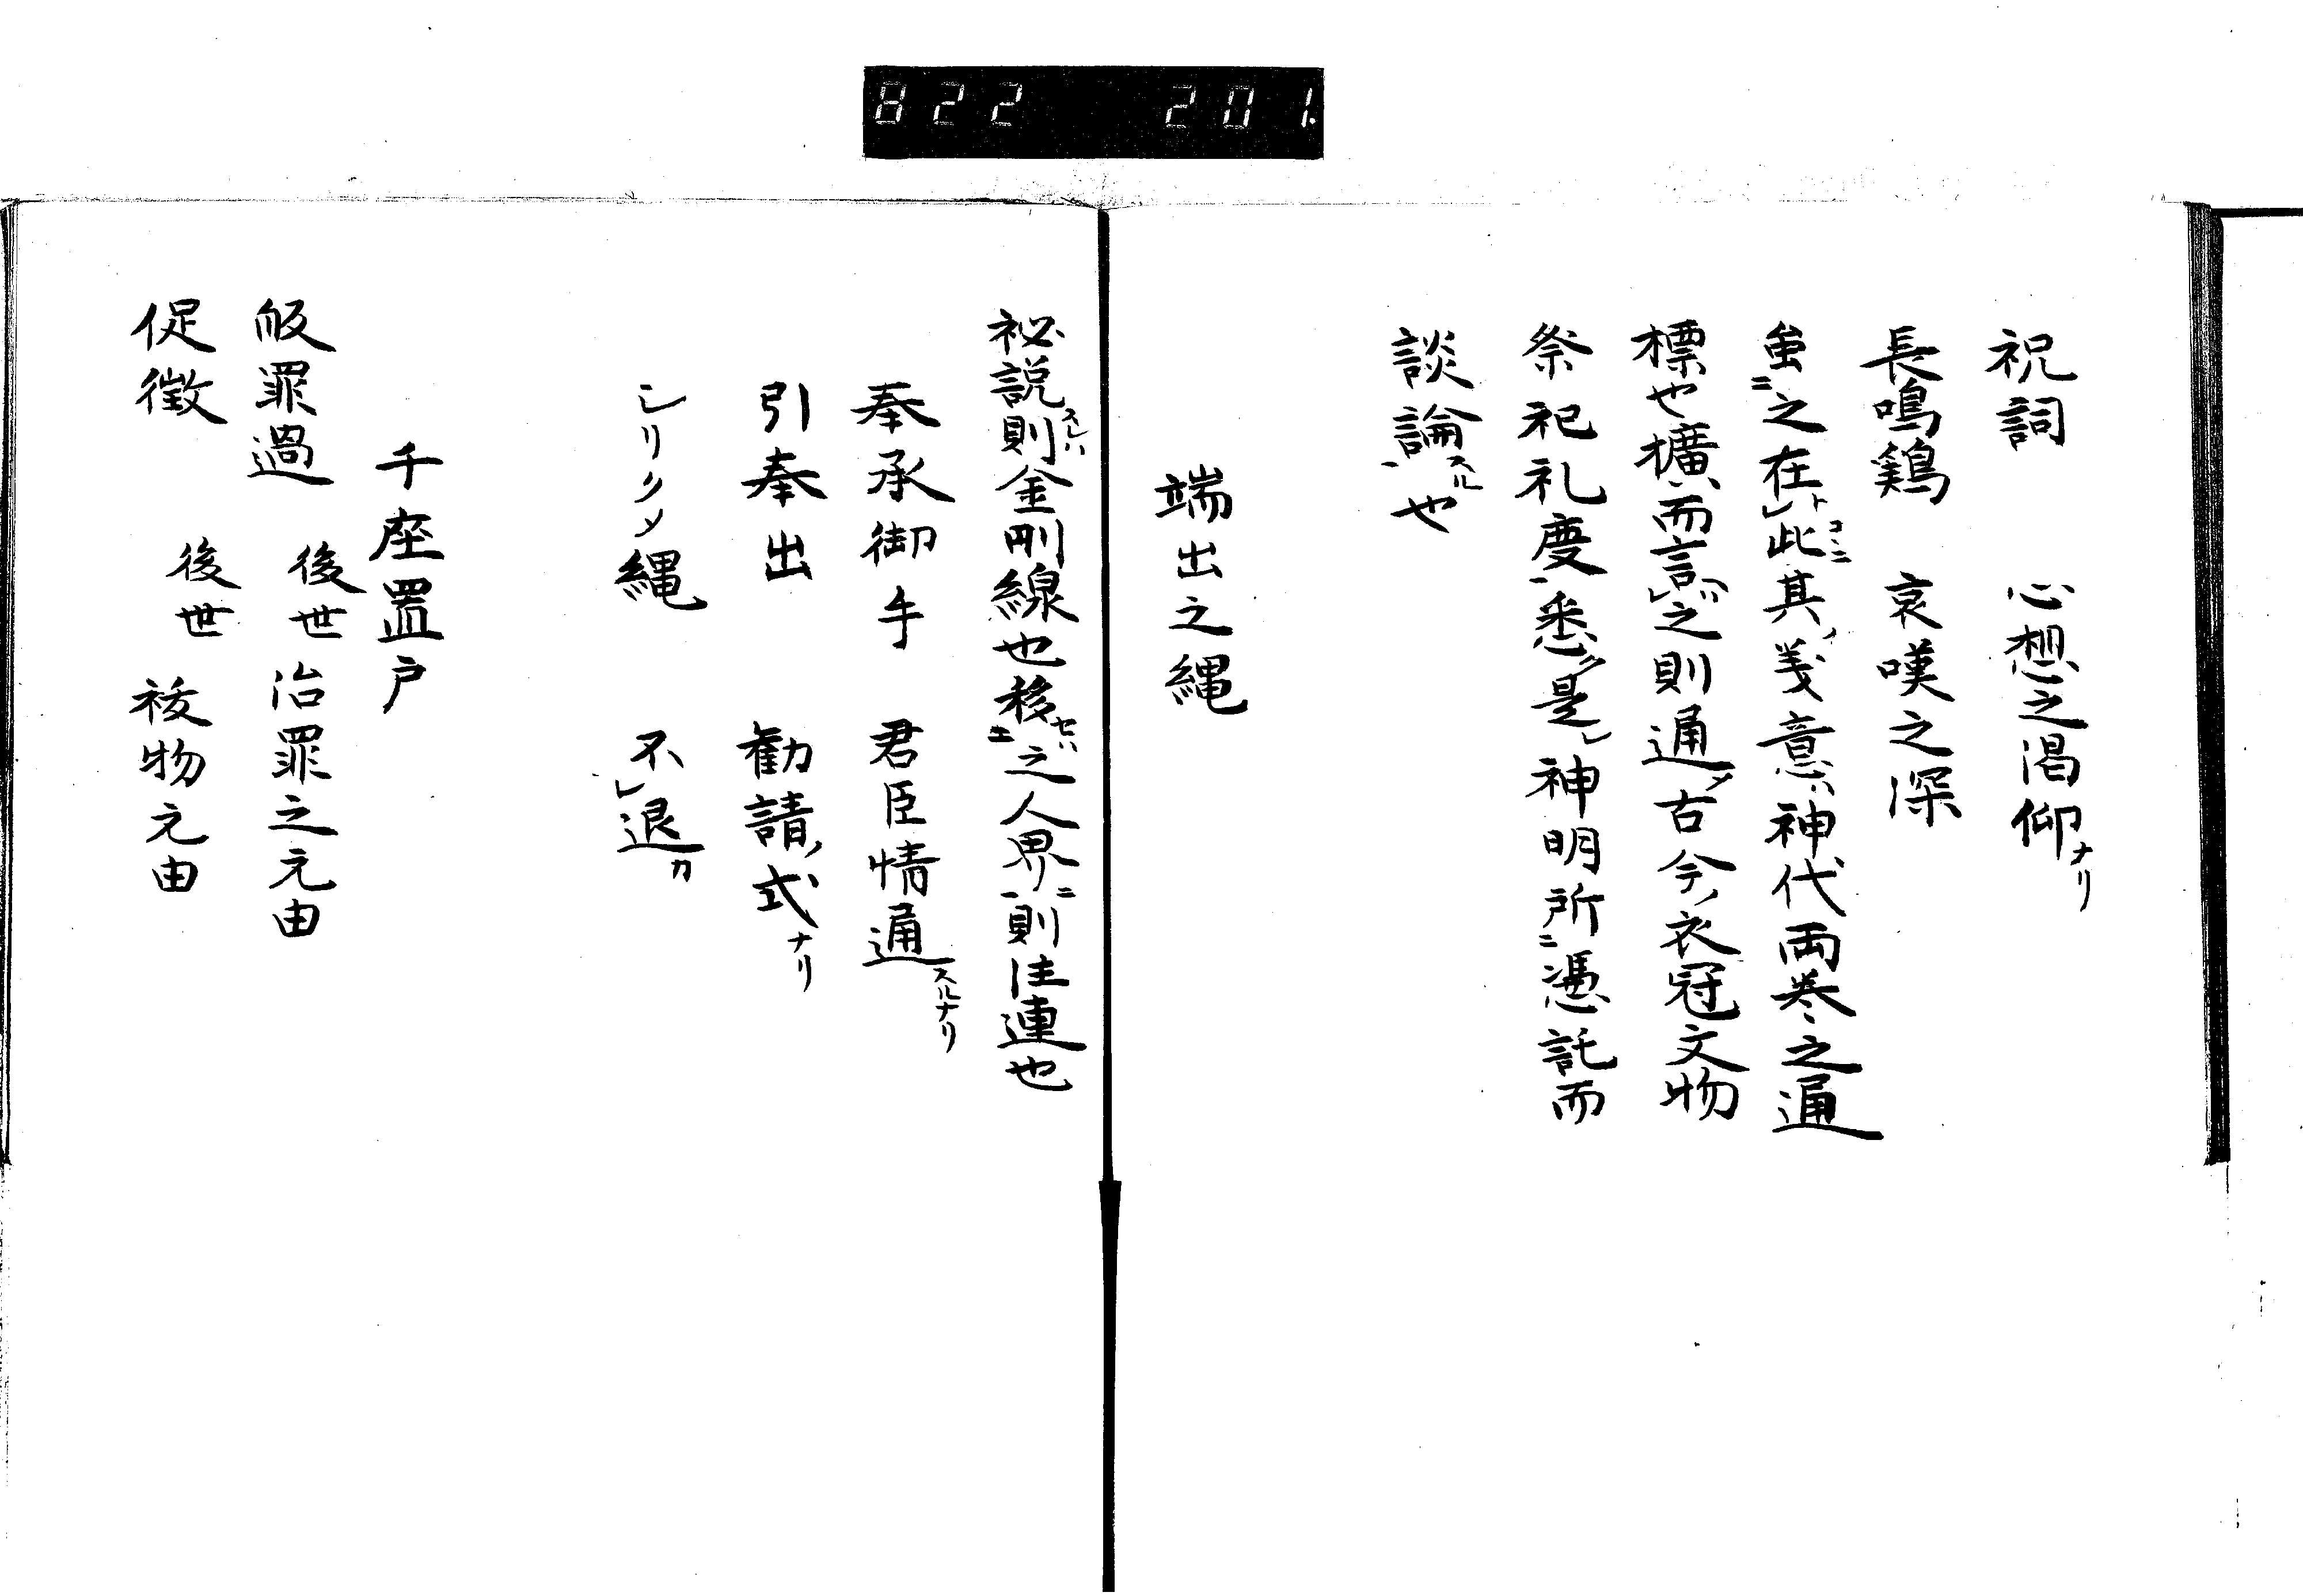 822 201.
祝詞 心想之渇仰ナリ
長鳴鶏 哀嘆之深
蛍ニ之在レ此トコヽニ其ノ義意ハ神代両巻之通
標也擴而言レ之則通メ古今ノ衣冠文物
祭祀礼慶悉ク是レ神明所ニ憑託而
談論スル也
端出之縄
祕説スレハ則金剛線也移セハニ之人界ニ則注連也
奉承御手 君臣情通スルナリ
引奉出 勧請ノ式ナリ
シリクメ縄 不レ退カ
千座置戸
皈罪過 後世治罪之元由
促徴 後世祓物元由